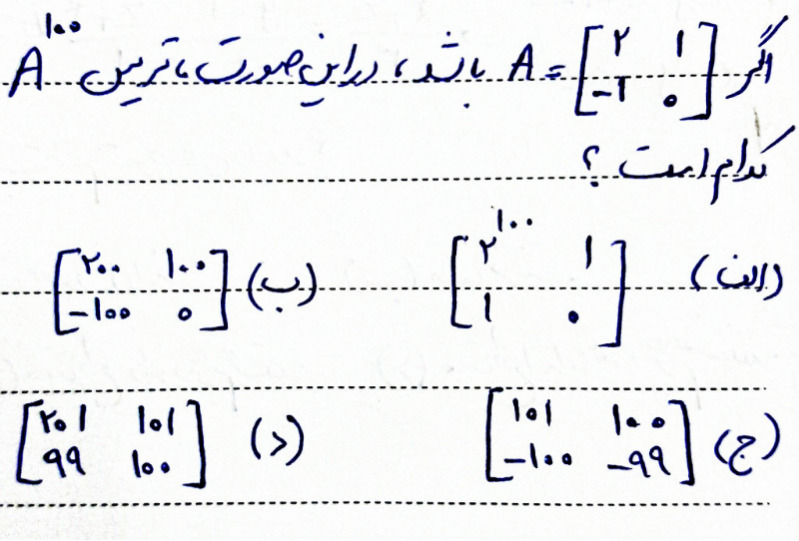 اگر A = [۲ ۱ -۱ ۰] باشد، در این صورت ماتریس A^۱۰۰
کدام است ؟
الف) [۲^۱۰۰ ۱ ۱ ۰] ب) [۲۰۰ ۱۰۰ -۱۰۰ ۰]
ج) [۱۰۱ ۱۰۰ -۱۰۰ -۹۹] د) [۲۰۱ ۱۰۱ ۹۹ ۱۰۰]